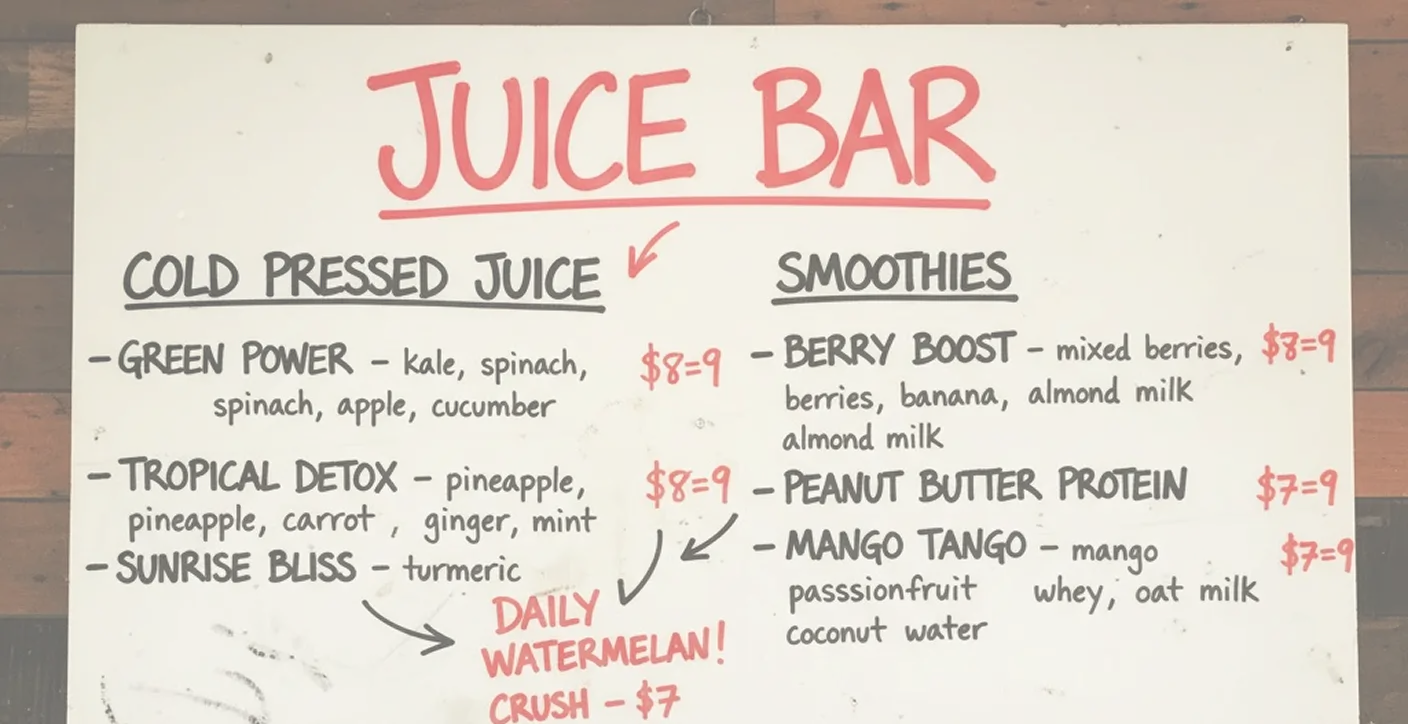 JUICE BAR
COLD PRESSED JUICE
– GREEN POWER – kale, spinach, $8=9
spinach, apple, cucumber
– TROPICAL DETOX – pineapple, $8=9
pineapple, carrot , ginger, mint
– SUNRISE BLISS – turmeric
DAILY
WATERMELAN!
CRUSH – $7
SMOOTHIES
– BERRY BOOST – mixed berries, $8=9
berries, banana, almond milk
almond milk
– PEANUT BUTTER PROTEIN $7=9
– MANGO TANGO – mango $7=9
passsionfruit whey, oat milk
coconut water